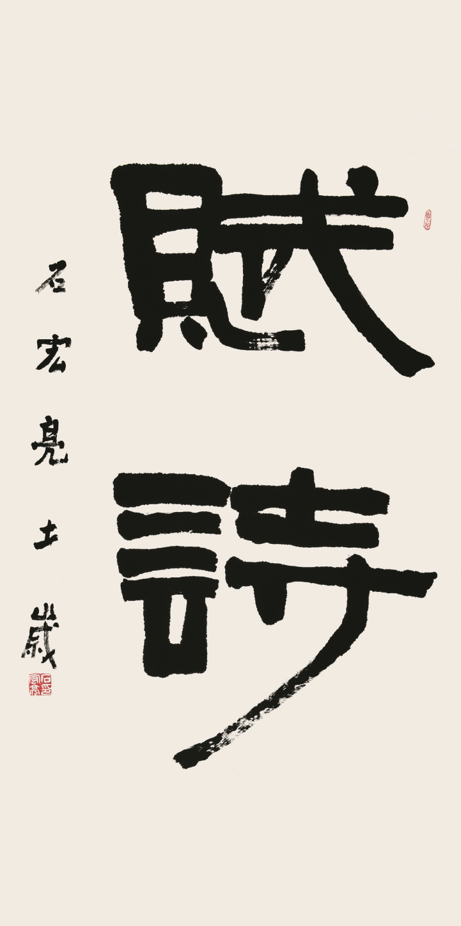 賦詩
石宏亮七歲